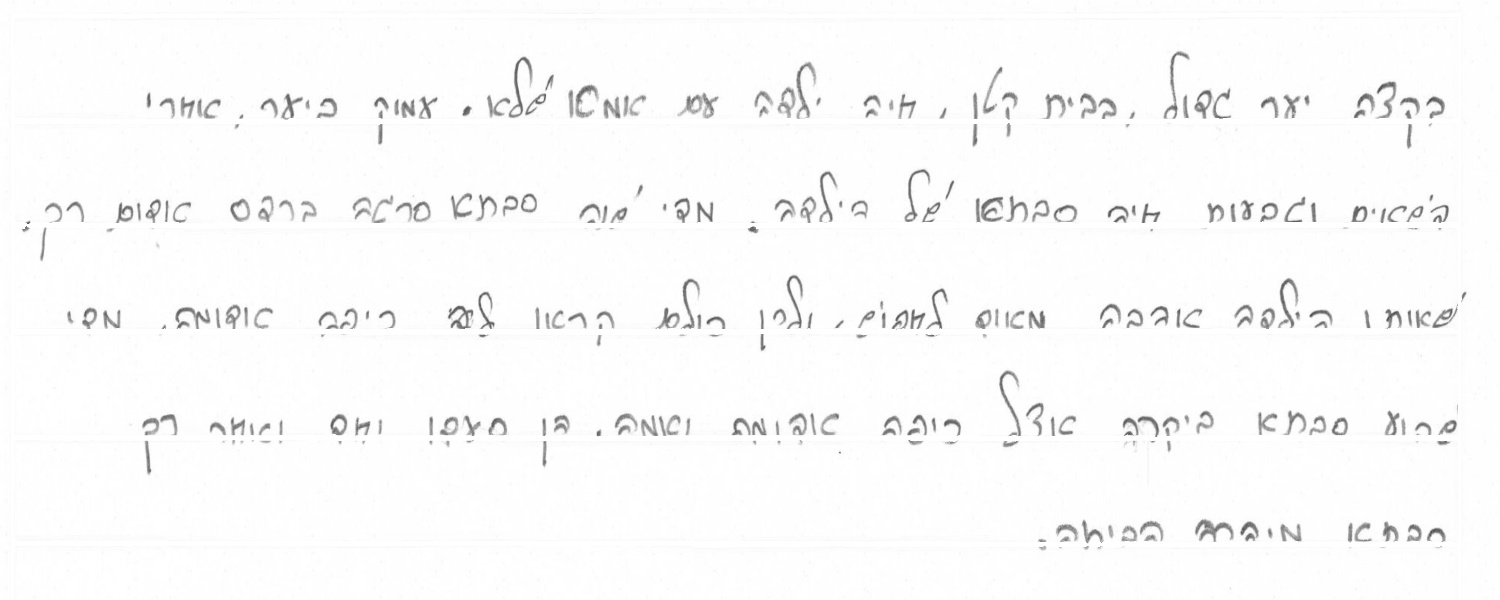 בקצה יער גדול, בבית קטן, חיה ילדה עם אמא שלא. עמוק ביער, אחרי
השאים וגבעות חיה סבתא של הילדה. מדי שנה סבתא סרגה ברדס אדום רק.
שאותו הילדה אהבה מאוד לחפוש, ולכן כולם קראו לה כיפה אדומה. מדי
שבוע סבתא ביקרה אצל כיפה אדומה ואמה. הן טעמו ותה ואוחה רק
סבתא מיהרה הביתה.